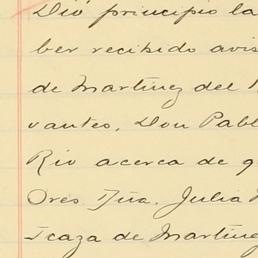 Dió principio la
ber recibido avis
de Martínez del
vantes, Don Pabl
Rio acerca de q
Ores Dña. Julia
Icaza de Martínez